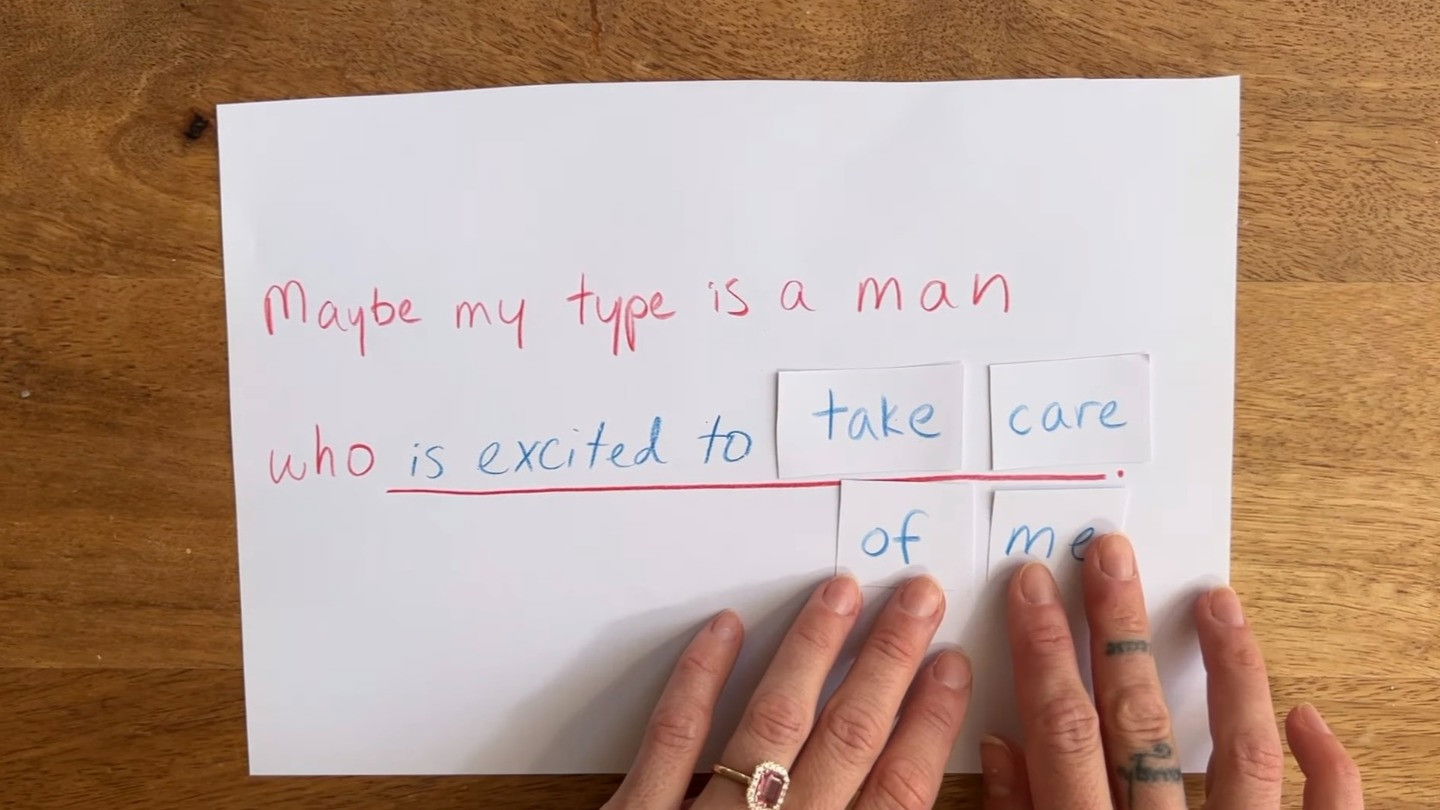 Maybe my type is a man
who is excited to take care.
of me